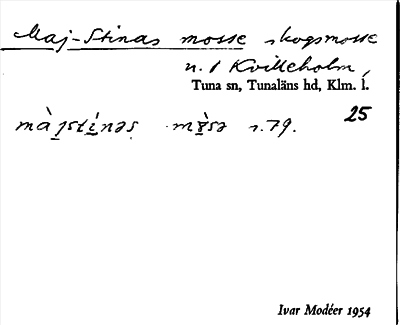 Maj-Stinas mosse skogsmosse
u. / Kvilleholm,
Tuna sn, Tunaläns hd, Klm. l.
25
s.79.
Ivar Modéer 1954